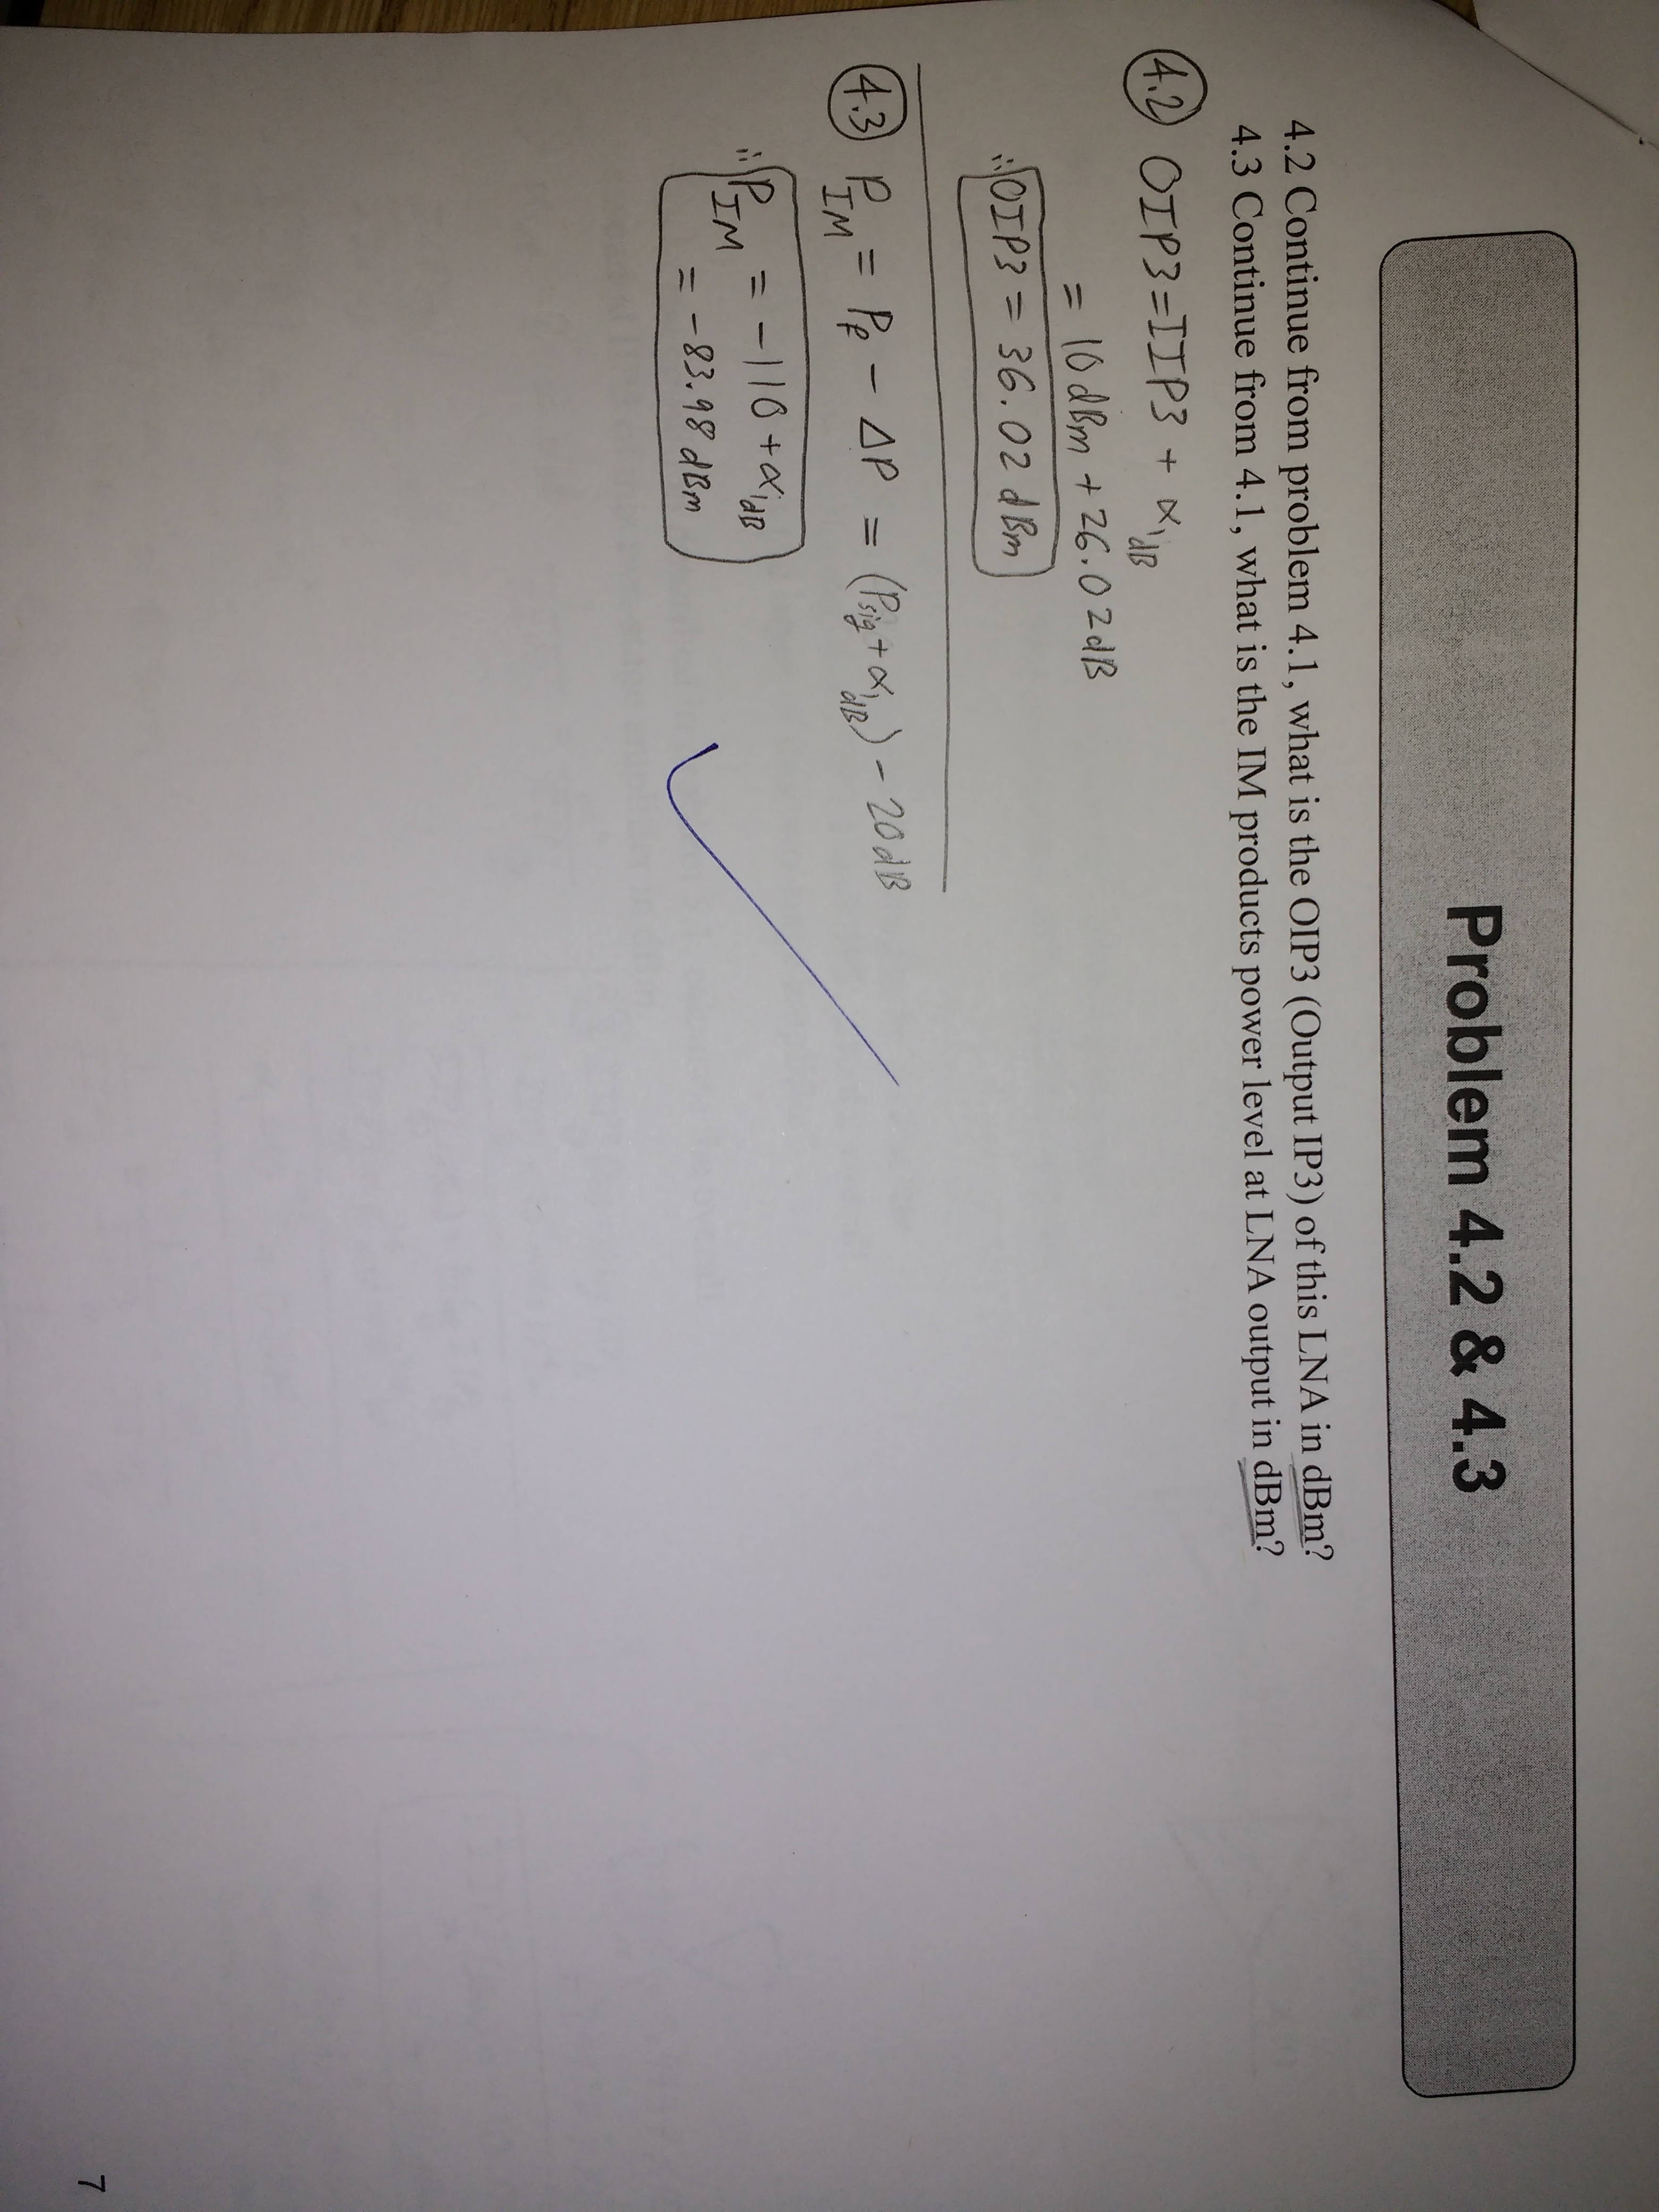 Problem 4.2 & 4.3
4.2 Continue from problem 4.1, what is the OIP3 (Output IP3) of this LNA in dBm?
4.3 Continue from 4.1, what is the IM products power level at LNA output in dBm?
4.2 OIP3 = IIP3 + α₁dB
= 10 dBm + 26.02 dB
∴ OIP3 = 36.02 dBm
4.3 P_IM = P_f - ΔP = (P_sig + α₁dB) - 20 dB
∴ P_IM = -110 + α₁dB
= -83.98 dBm
7